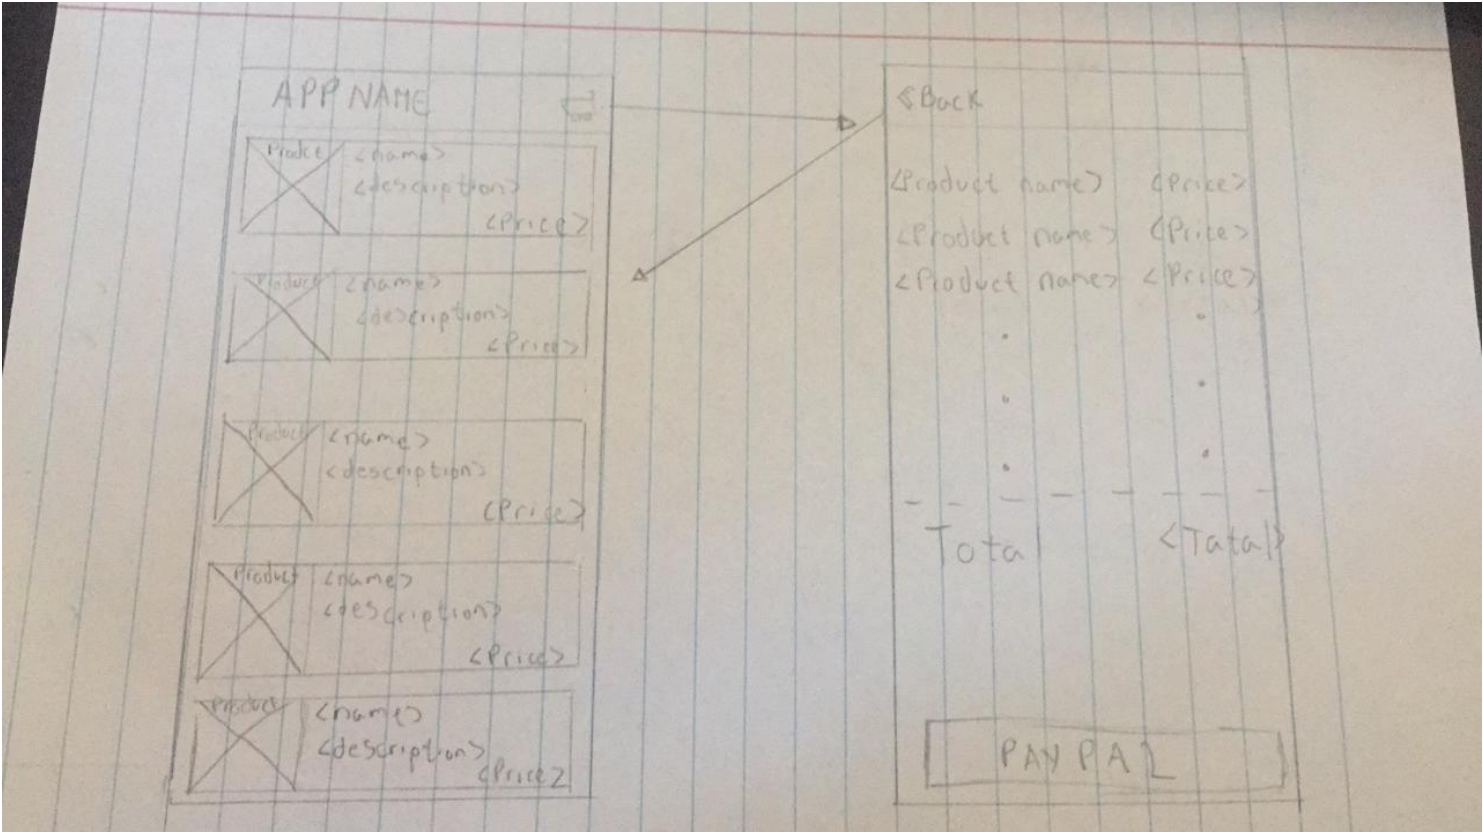 APP NAME
Product <name>
<description>
<Price>
Product <name>
<description>
<Price>
Product <name>
<description>
<Price>
Product <name>
<description>
<Price>
Product <name>
<description>
<Price>
<Back
<Product name> <Price>
<Product name> <Price>
<Product name> <Price>
Total <Tatal>
PAYPAL